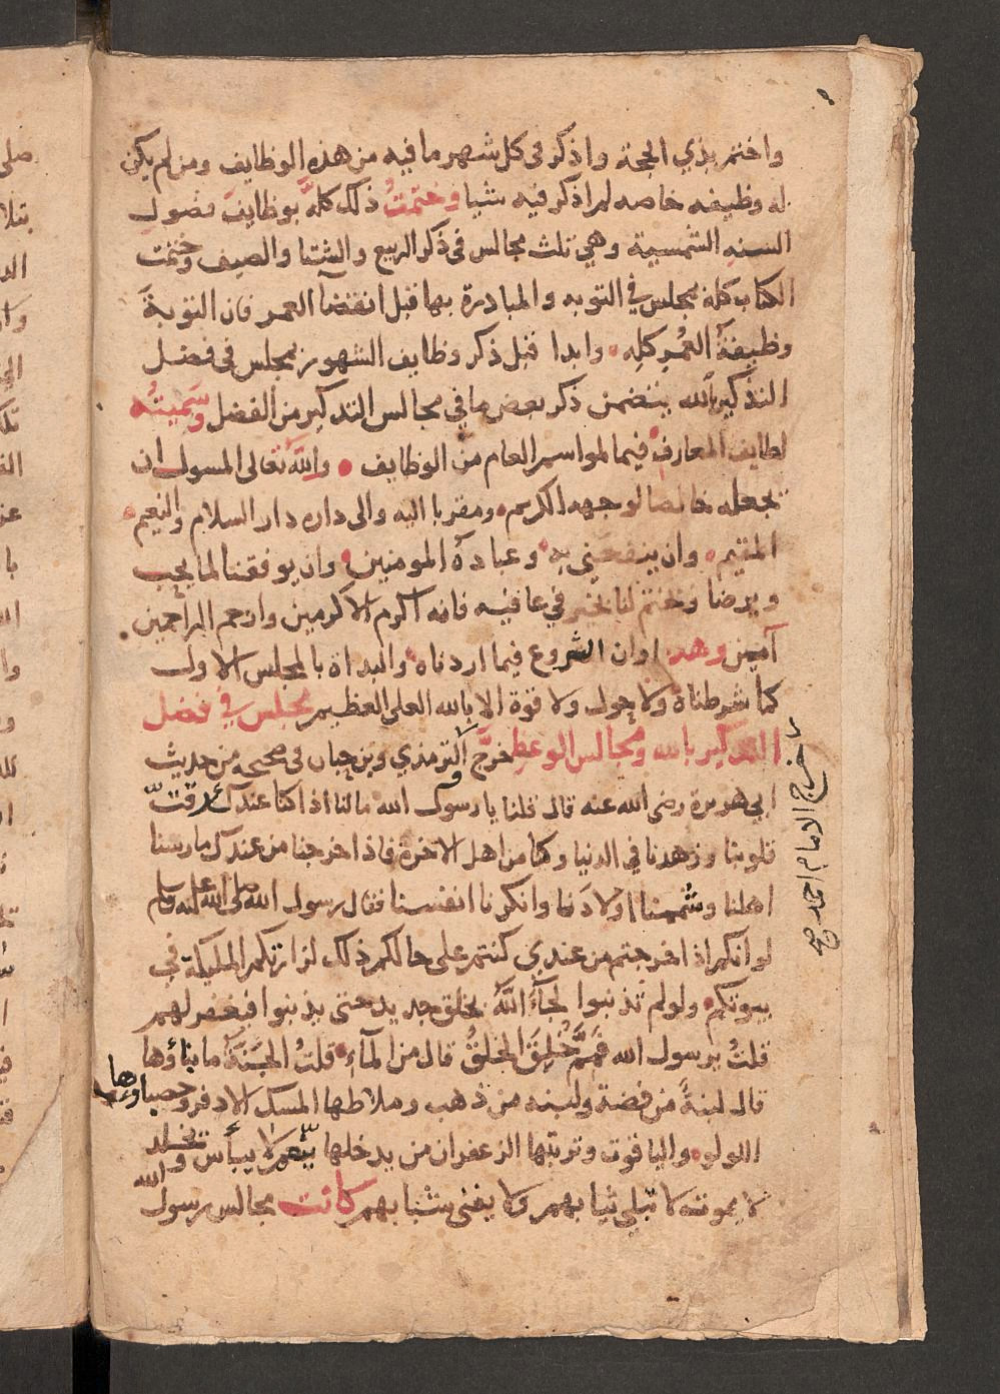 واختم بذي الحجة واذكر في كل شهر ما فيه من هذه الوظايف ومن لم يكن
له وظيفه خاصه لم اذكر فيه شيا وختمتُ ذلك كلهُ بوظايف فصول
السنه الشمسية وهي ثلث مجالس في ذكر الربيع والشتا والصيف وختمت
الكتاب كله بمجلس في التوبه والمبادرة بها قبل انقضا العمر فان التوبةَ
وظيفةُ العُمر كله وابدا قبل ذكر وظايف الشهور بمجلس في فضل
التذكير بالله يتضمن ذكر بعض ما في مجالس التدكير من الفضل وسَميتُه
لطايف المعارف فيما لمواسم العام من الوظايف والله تعالى المسول ان
يجعله خالصا لوجهه الكريم ومقربا اليه والى داره دار السلام والنعيم
المقيم وان ينفعني به وعباده المومنين وان يوفقنا لما يحب
ويرضا ويختم لنا بخير في عافيه فانه اكرم الاكرمين وارحم الراحمين
آمين وهدا اوان الشروع فيما اردناه والبداة بالمجلس الاول
كما شرطناه ولا حول ولا قوة الا بالله العلي العظيم مجلس في فضل
التدكير بالله ومجالس الوعظ خرَّج الترمذي وبن حبان في صحيحه من حديث
ابي هريرة رضي الله عنه قال قلنا يا رسول الله مالنا اذا كنا عندك رقتّ
قلوبنا وزهدنا في الدنيا وكنا من اهل الاخرة فاذا خرجنا من عندك مارسنا
اهلنا وشممنا اولادَنا وانكرنا انفسنا فقال رسول الله صلى الله عليه وسلم
لو انكم اذا خرجتم من عندي كنتم على حالكم ذلك لزارتكم المليكة في
بيوتكم ولو لم تذنبوا لجآءَ اللهُ بخلق جديد حتى يذنبوا فيغفر لهم
قلتُ يرسول الله مَمَّ خُلِقَ الخلقُ قال من المآءِ قلتُ الجَنةُ ما بناؤها
قال لبنةٌ من فضة ولبنه من ذهب وملاطها المسك الادفر وحصباوءها
اللولو والياقوت وتربتها الزعفران من يدخلها ينّعم لا يبأس ويخلد
لا يموت لا تبلي ثيابهم ولا يفنى شبابهم كانت مجالس رسول الله
اخرج الامام احمد صح